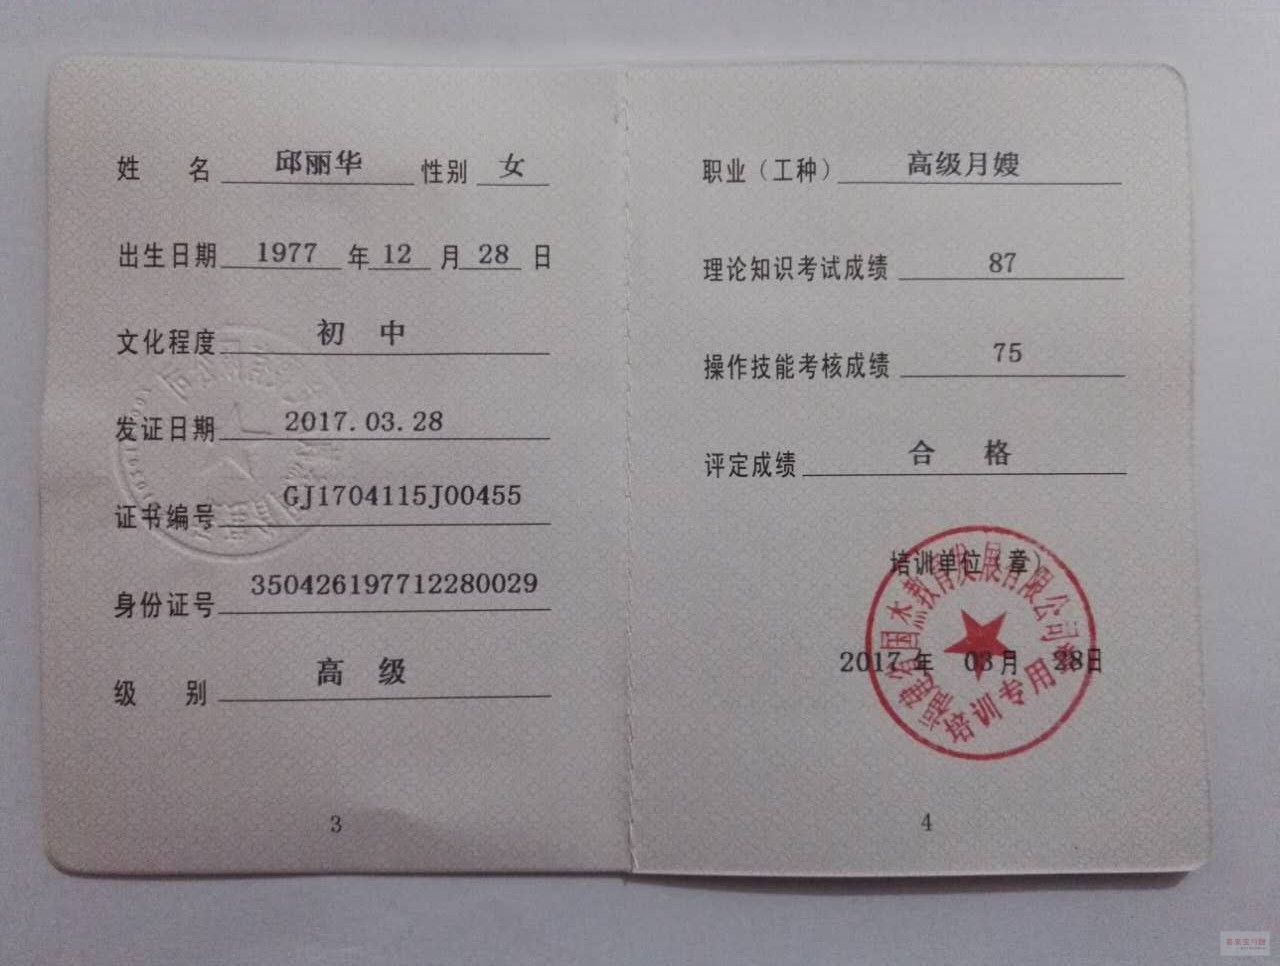 姓 名 邱丽华 性别 女
出生日期 1977 年 12 月 28 日
文化程度 初 中
发证日期 2017.03.28
证书编号 GJ1704115J00455
身份证号 350426197712280029
级 别 高 级
3
职业（工种） 高级月嫂
理论知识考试成绩 87
操作技能考核成绩 75
评定成绩 合 格
培训单位（章）
福建省国杰教育发展有限公司
2017 年 03 月 28 日
培训专用章
4